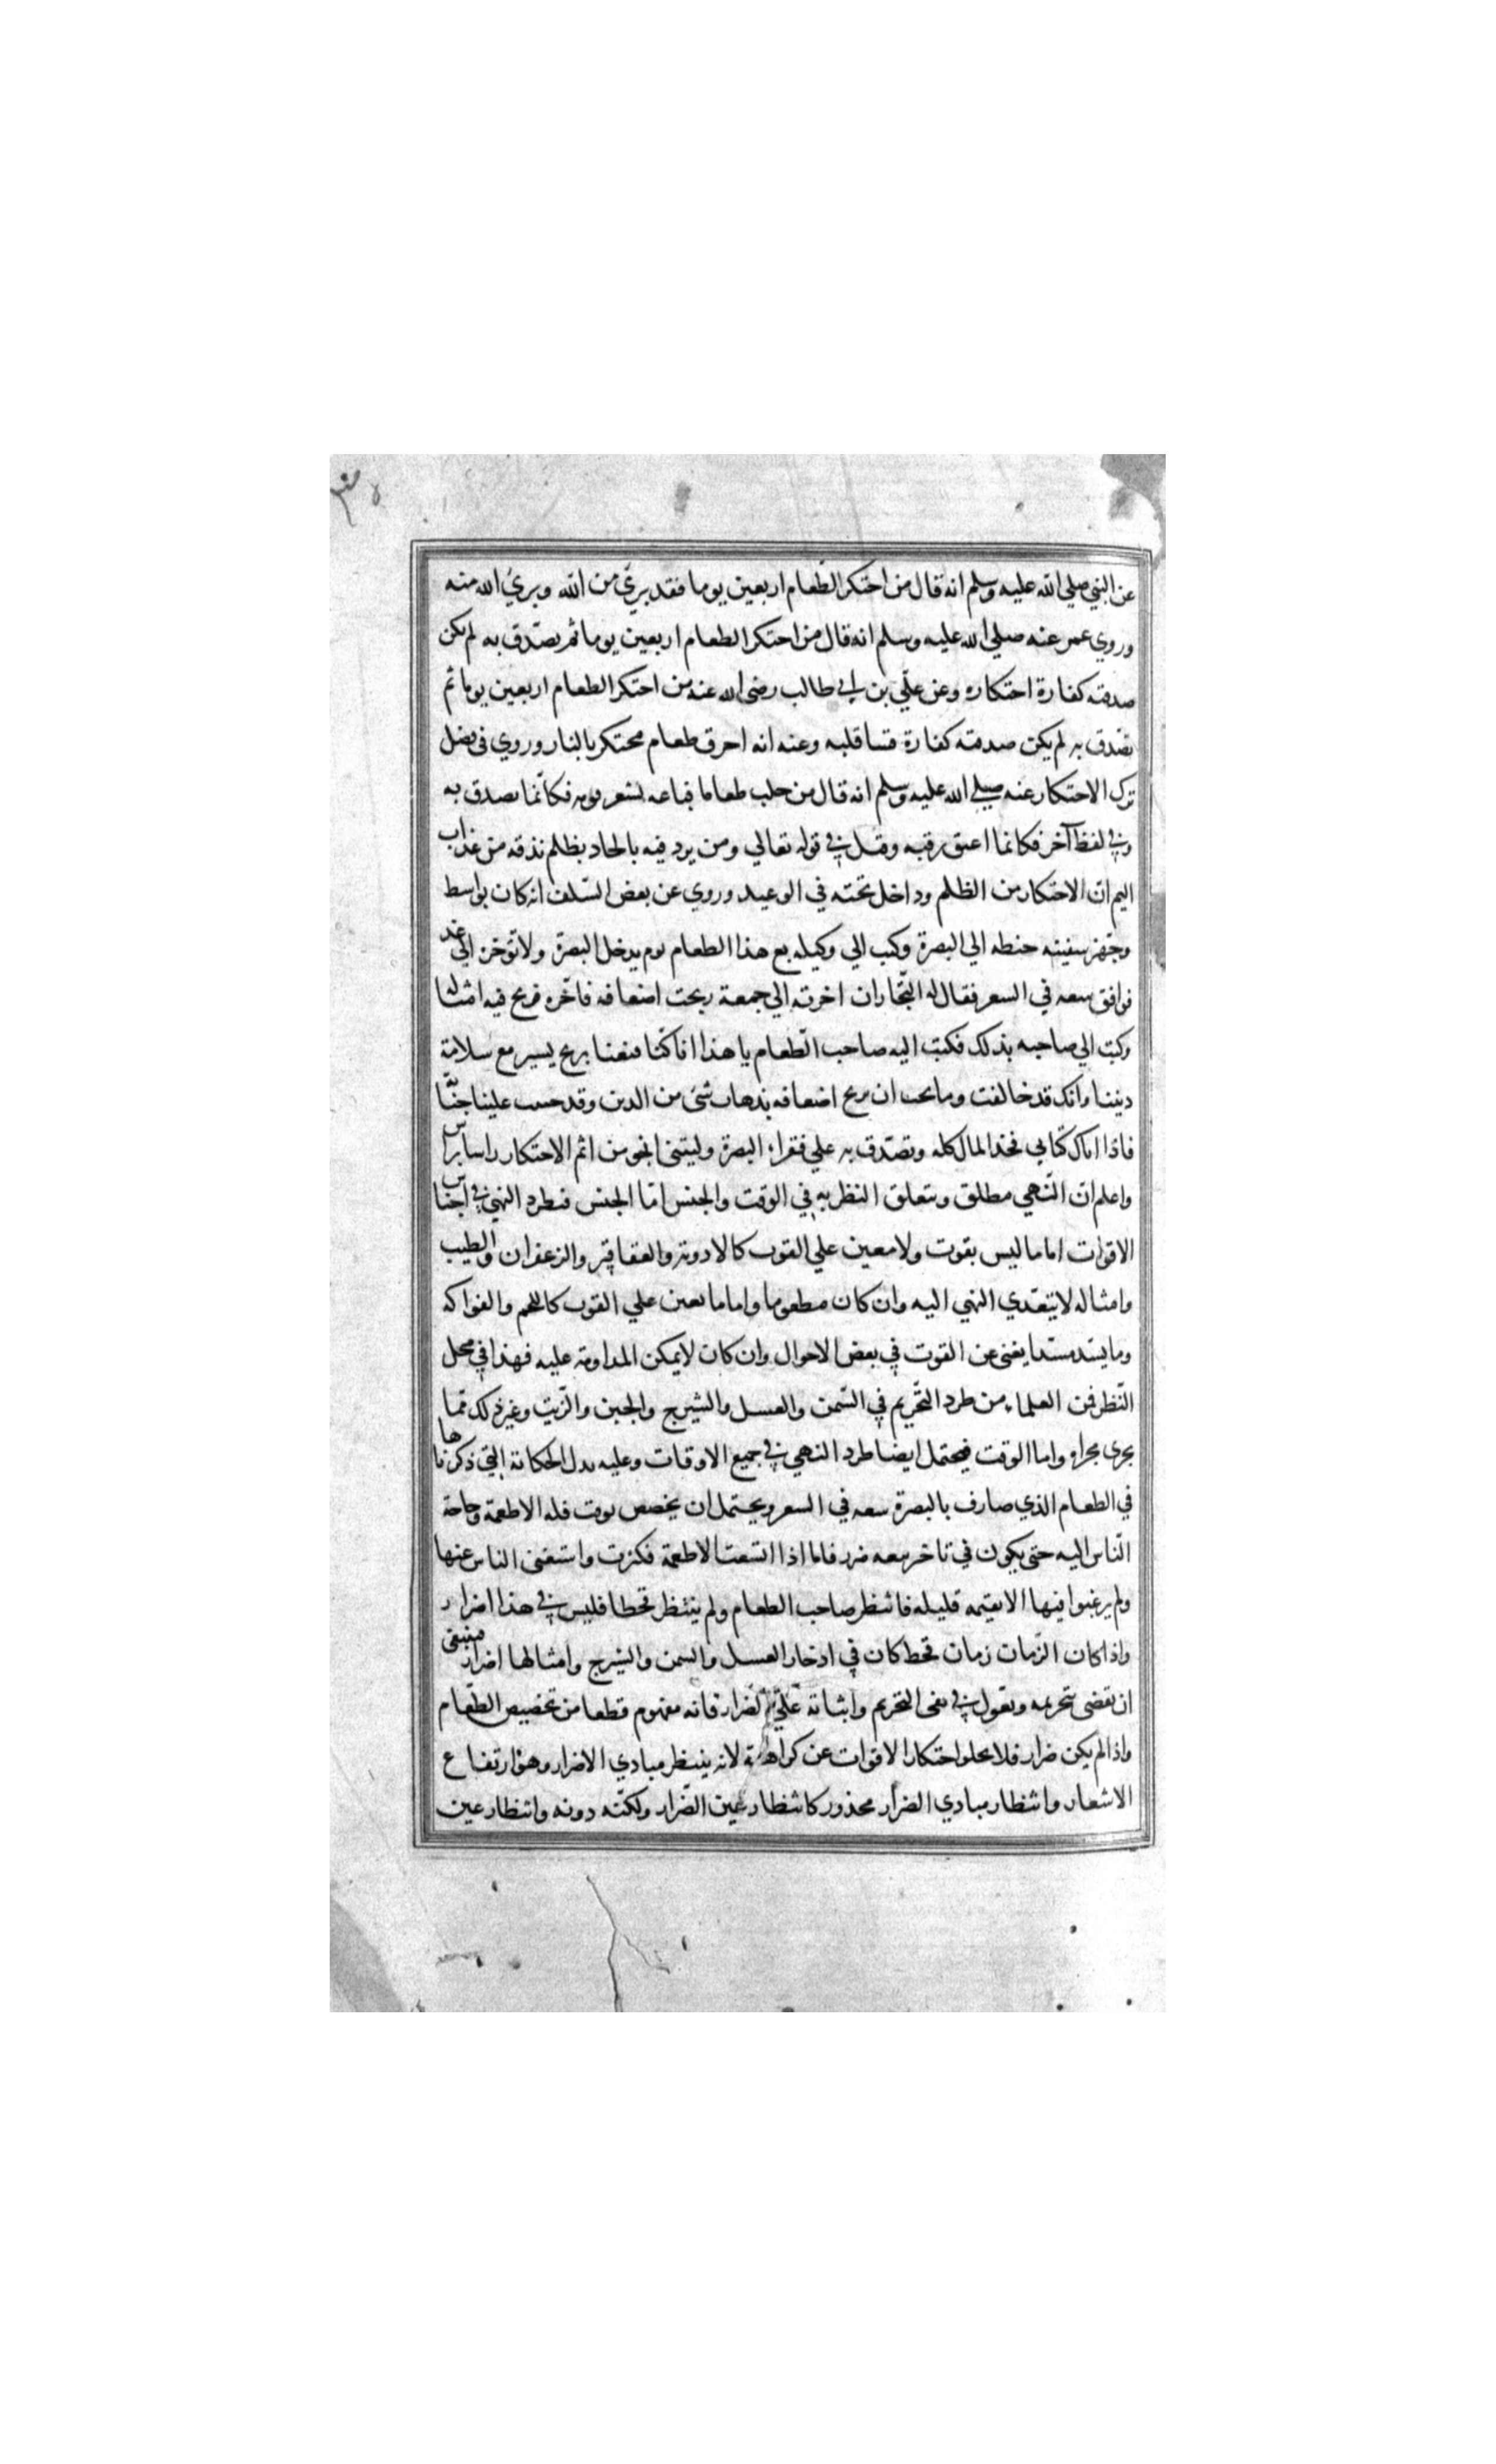 عن النبي صلي الله عليه وسلم انه قال من احتكر الطعام اربعين يوما فقد بريّ من الله وبريُ الله منه
وروي عمر عنه صلي الله عليه وسلم انه قال من احتكر الطعام اربعين يوما ثم تصدّق به لم يكن
صدقته كفارة احتكاره وعن علّي بن ابي طالب رضي الله عنه من احتكر الطعام اربعين يوما ثم
تصدق به لم يكن صدقته كفارة قسا قلبه وعنه انه احرق طعام محتكر بالنار وروي في فضل
ترك الاحتكار عنه صلي الله عليه وسلم انه قال من جلب طعاما فباعه بسعر يومه فكانّما تصدق به
وفي لفظ آخر فكانما اعتق رقبه وقيل في قوله تعالي ومن يرد فيه بالحاد بظلم نذقه من عذاب
اليم ان الاحتكار من الظلم وداخل تحته في الوعيد وروي عن بعض السّلف انه كان بواسط
وجّهز سفينه حنطه الي البصرة وكتب الي وكيله بع هذا الطعام يوم يدخل البصرة ولا تؤخره الي غد
فوافق سعه في السعر فقال له التجّار ان اخرته الي جمعة ربحت اضعافه فاخّره فربح فيه امثاله
وكتب الي صاحبه بذلك فكتب اليه صاحب الطّعام يا هذا انا كنّا قنعنا بربح يسير مع سلامة
ديننا وانك قد خالفت وما نحب ان نربح اضعافه بذهاب شئ من الدين وقد حسب علينا جنّا
فاذا اتاك كتابي فخذ المال كله وتصّدق به علي فقراء البصرة وليتني انجو من اثم الاحتكار راسا براس
واعلم ان النّهي مطلق ويتعلق النظر به في الوقت والجنس امّا الجنس فيطرد النهي في اجناس
الاقوات اما ما ليس بقوت ولا معين علي القوت كالادوية والعقاقير والزعفران والطيب
وامثاله لا يتعّدي النهي اليه وان كان مطعوما واما ما يعين علي القوت كاللحم والفواكه
وما يسّد مسّدا يغني عن القوت في بعض الاحوال وان كان لا يمكن المداومة عليه فهذا في محل
النّظر فمن العلماء من طرد التّحريم في السّمن والعسل والشيرج والجبن والزّيت وغير ذلك ممّا
يجري مجراه واما الوقت فيحتمل ايضا طرد النهي في جميع الاوقات وعليه يدل الحكاية التي ذكرناها
في الطعام الذي صارف بالبصرة سعه في السعر ويحتمل ان يخصص بوقت قله الاطعمة وحاجة
النّاس اليه حتى يكون في تاخير بيعه ضرر فاما اذا اتسعت الاطعمة فكثرت واستغنى الناس عنها
ولم يرغبوا فيها الا بقيمه قليله فانتظر صاحب الطعام ولم ينتظر قحطا فليس في هذا اضرار
واذا كان الزّمان زمان قحط كان في ادخار العسل والسمن والشيرج وامثالها اضرار فينبغي
ان يقضى بتحريمه ويقول في نفى التحريم واثباته علي الضرار فانه مفهوم قطعا من تخصيص الطّعام
واذا لم يكن ضرار فلا يخلو احتكار الاقوات عن كراهة لانه ينتظر مبادي الاضرار وهو ارتفاع
الاسعار وانتظار مبادي الضرار محذور كانتظار عين الضّرار ولكنّه دونه وانتظار عين